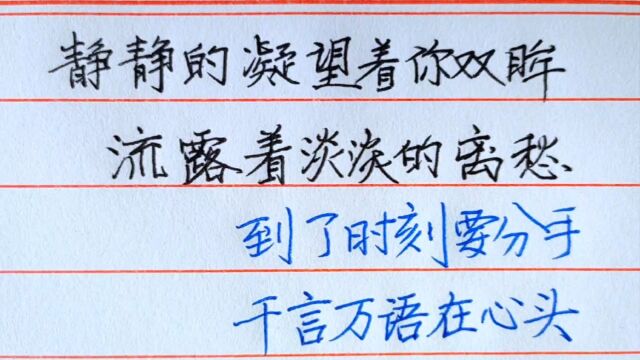 静静的凝望着你双眸
流露着淡淡的离愁
到了时刻要分手
千言万语在心头